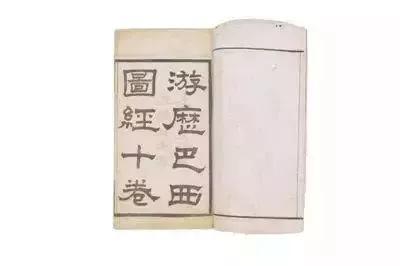 游歷巴西
圖經十卷